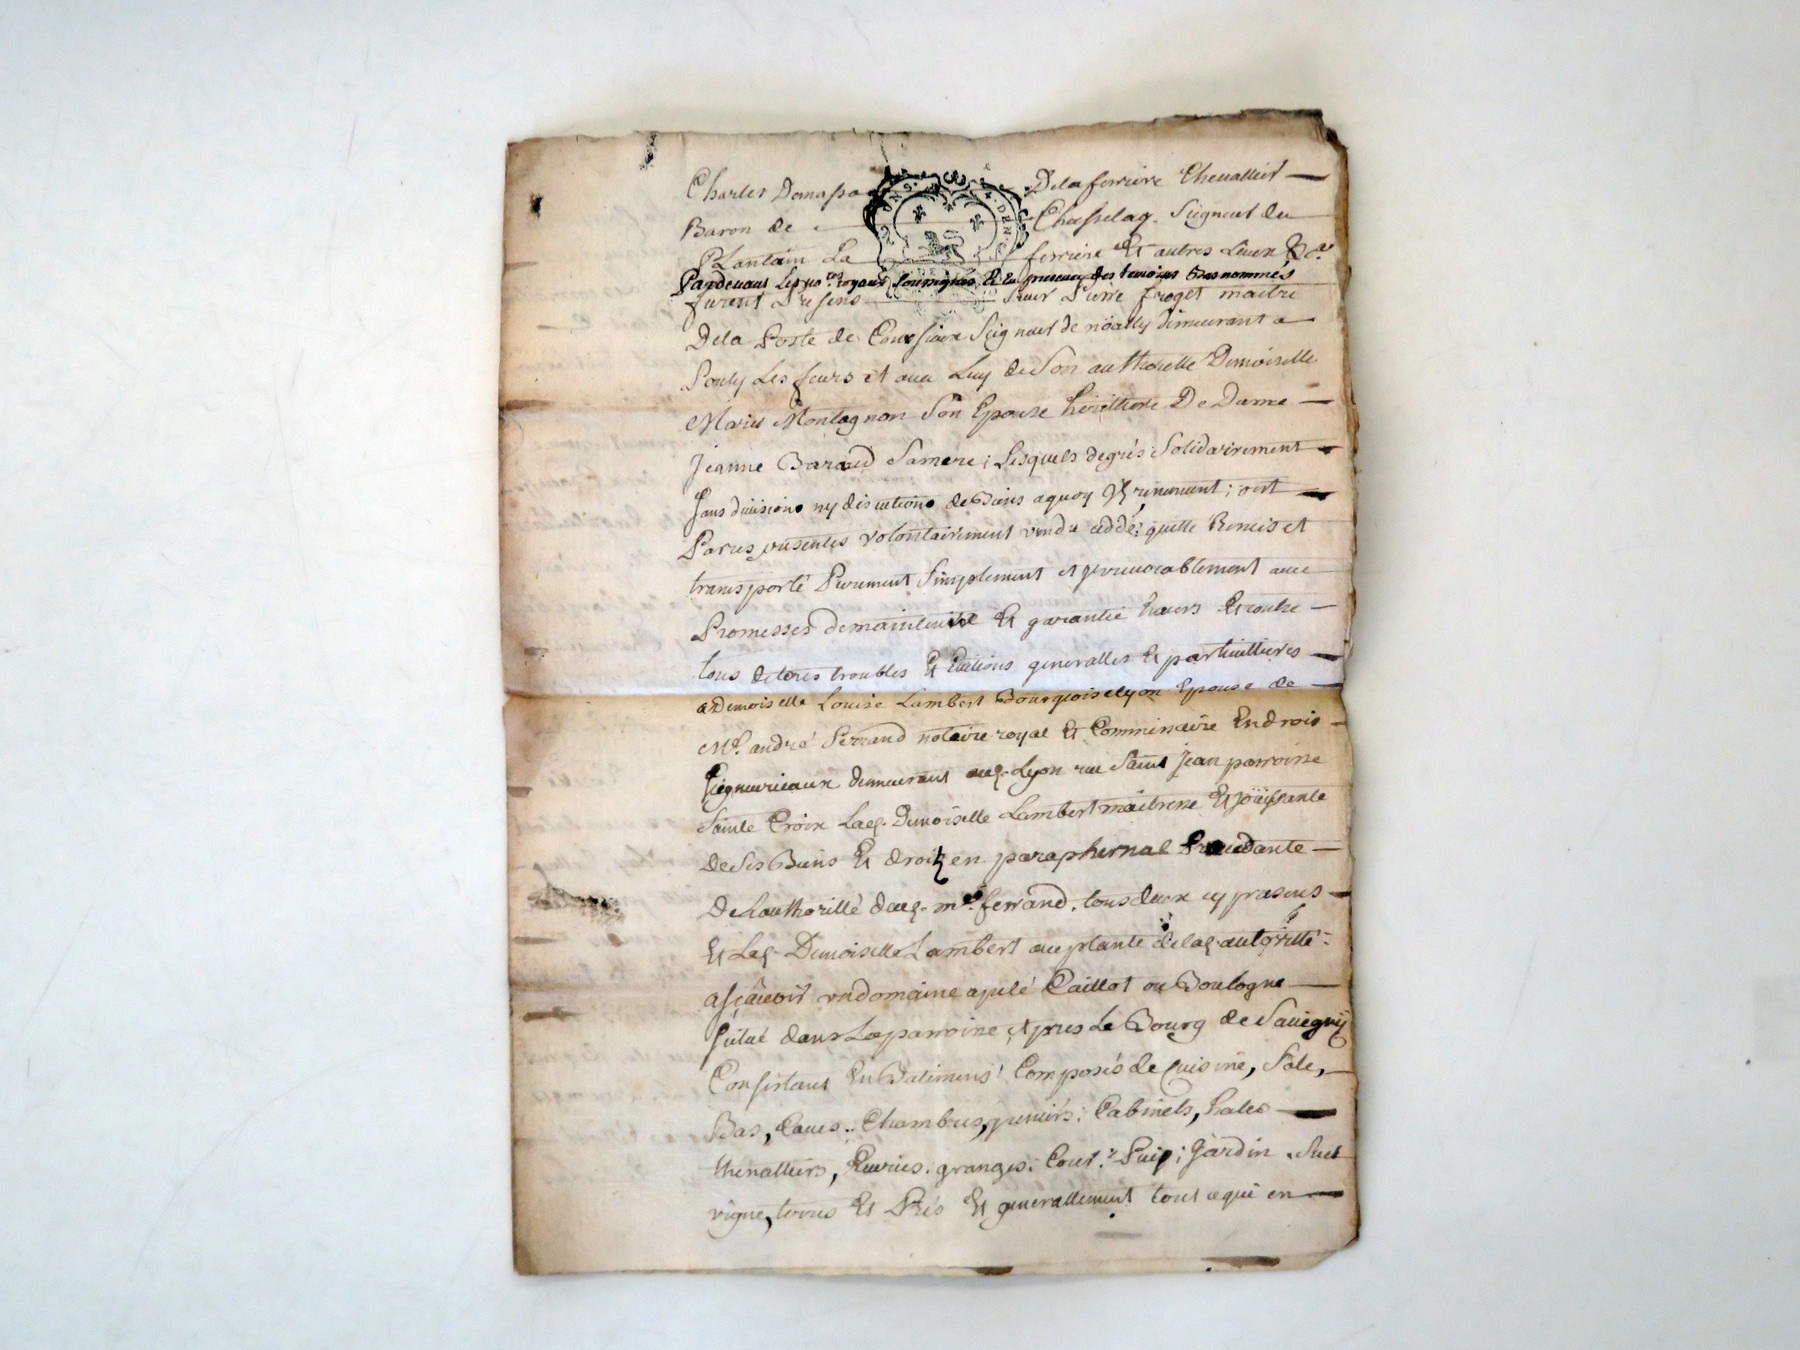 Charles Demasso Delaferriere Chevallier
Baron de Chasselay. Seigneur du
Plantain La ferriere Et autres Lieux &ca
Pardevant Les no.res royaux Soussignés Et En presence des temoins bas nommés
furent Presens Sieur Pierre froget maitre
Dela Poste de Seigneur de noailly demeurant a
Pouly Les feurs et avec Luy de Son authorité Demoiselle
Marie Montagnon Son Epouse heritiere De Dame
Jeanne Baraud Samere; Lesquels degrés Solidairement
Sans division ny discution de Biens aquoy renoncent; ont
Parces presentes volontairement vendu ceddé, quitté Remis et
transporté Purement Simplement et yrrevocablement avec
Promesses demaintenir Et garantie Envers Et contre
tous detous troubles Et Evictions generalles Et particulieres
aDemoiselle Louise Lambert Bourgoise Lyon Epouse de
Me. andré ferrand notaire royal Et Commissaire En drois
Seigneuriaux demeurant aud. Lyon rue Saint Jean parroisse
Sainte Croix Lad. Demoiselle Lambert maitresse Et joüissante
De Ses Biens Et droits en paraphernal Procedante
De Lauthorité dud. me. ferrand, tous deux cy presens
Et Lad. Demoiselle Lambert aceptante delad. autoritté
asçavoir undomaine apelé Caillot ou Boulogne
Situé dans La parroisse et pres Le Bourg de Savigny
Consistant En Batimens Composés de Cuisine, Sale,
Bas, Caves, Chambres, greniers, Cabinets, hales
thenalliers, Ecuries, granges, Cour, Puis, Jardin,
vigne, terres Et Prés Et generallement tout cequi en